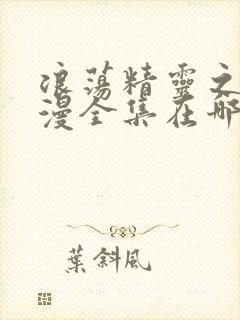 浪荡精靈之
漫全集在哪
葉斜風